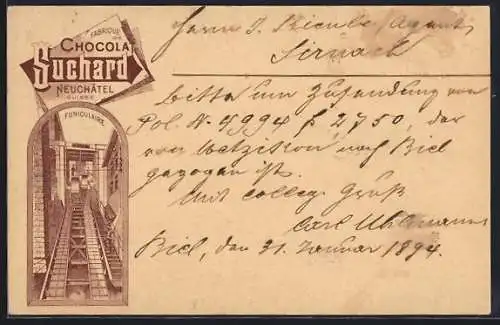 FABRIQUE
DE
CHOCOLA
Suchard
NEUCHÂTEL
SUISSE
FUNICULAIRE
Herrn J. Agent,
Sirnach
Bitte um Zusendung von
Pol. N. 4994 f 2750, der
von Wetzikon nach Biel
gezogen ist.
Mit colleg. Gruß
Carl Uhlmann
Biel, den 31. Januar 1894.